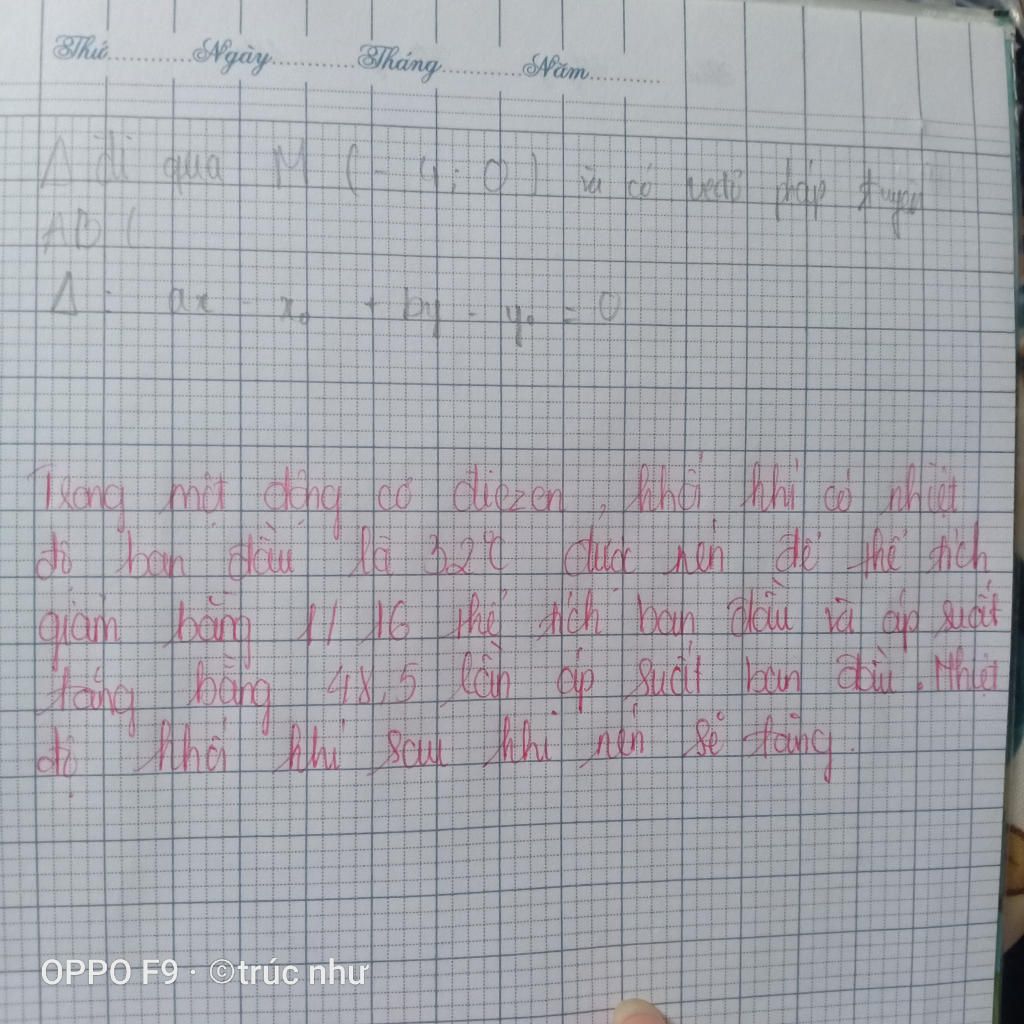 Thứ............Ngày............Tháng............Năm..........
Δ đi qua M (-4; 0) và có vectơ pháp tuyến
AB (
Δ: ax - x₀ + by - y₀ = 0
Trong một động cơ điezen, khối khí có nhiệt
độ ban đầu là 32℃ được nén để thể tích
giảm bằng 1/16 thể tích ban đầu và áp suất
tăng bằng 48,5 lần áp suất ban đầu. Nhiệt
độ khối khí sau khi nén sẽ tăng.
OPPO F9 · ©trúc như